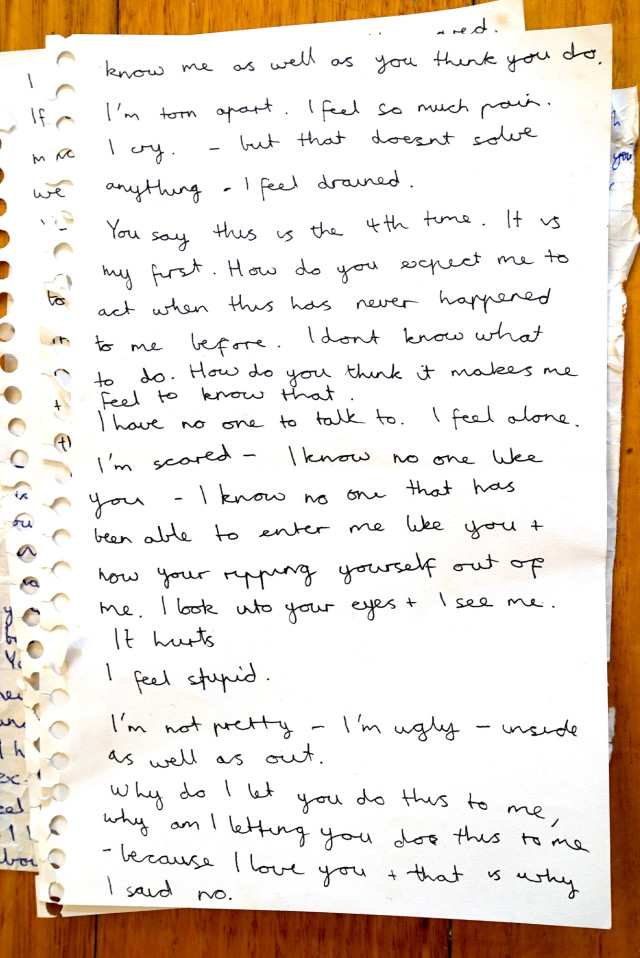 ared.
know me as well as you think you do.
I'm torn apart. I feel so much pain.
I cry. - but that doesnt solve
anything - I feel drained.
You say this is the 4th time. It is
my first. How do you expect me to
act when this has never happened
to me before. I dont know what
to do. How do you think it makes me
feel to know that.
I have no one to talk to. I feel alone.
I'm scared - I know no one like
you - I know no one that has
been able to enter me like you +
now your ripping yourself out of
me. I look into your eyes + I see me.
It hurts
I feel stupid.
I'm not pretty - I'm ugly - inside
as well as out.
Why do I let you do this to me,
why am I letting you do this to me
- because I love you + that is why
I said no.
I
If
we
to
+
you